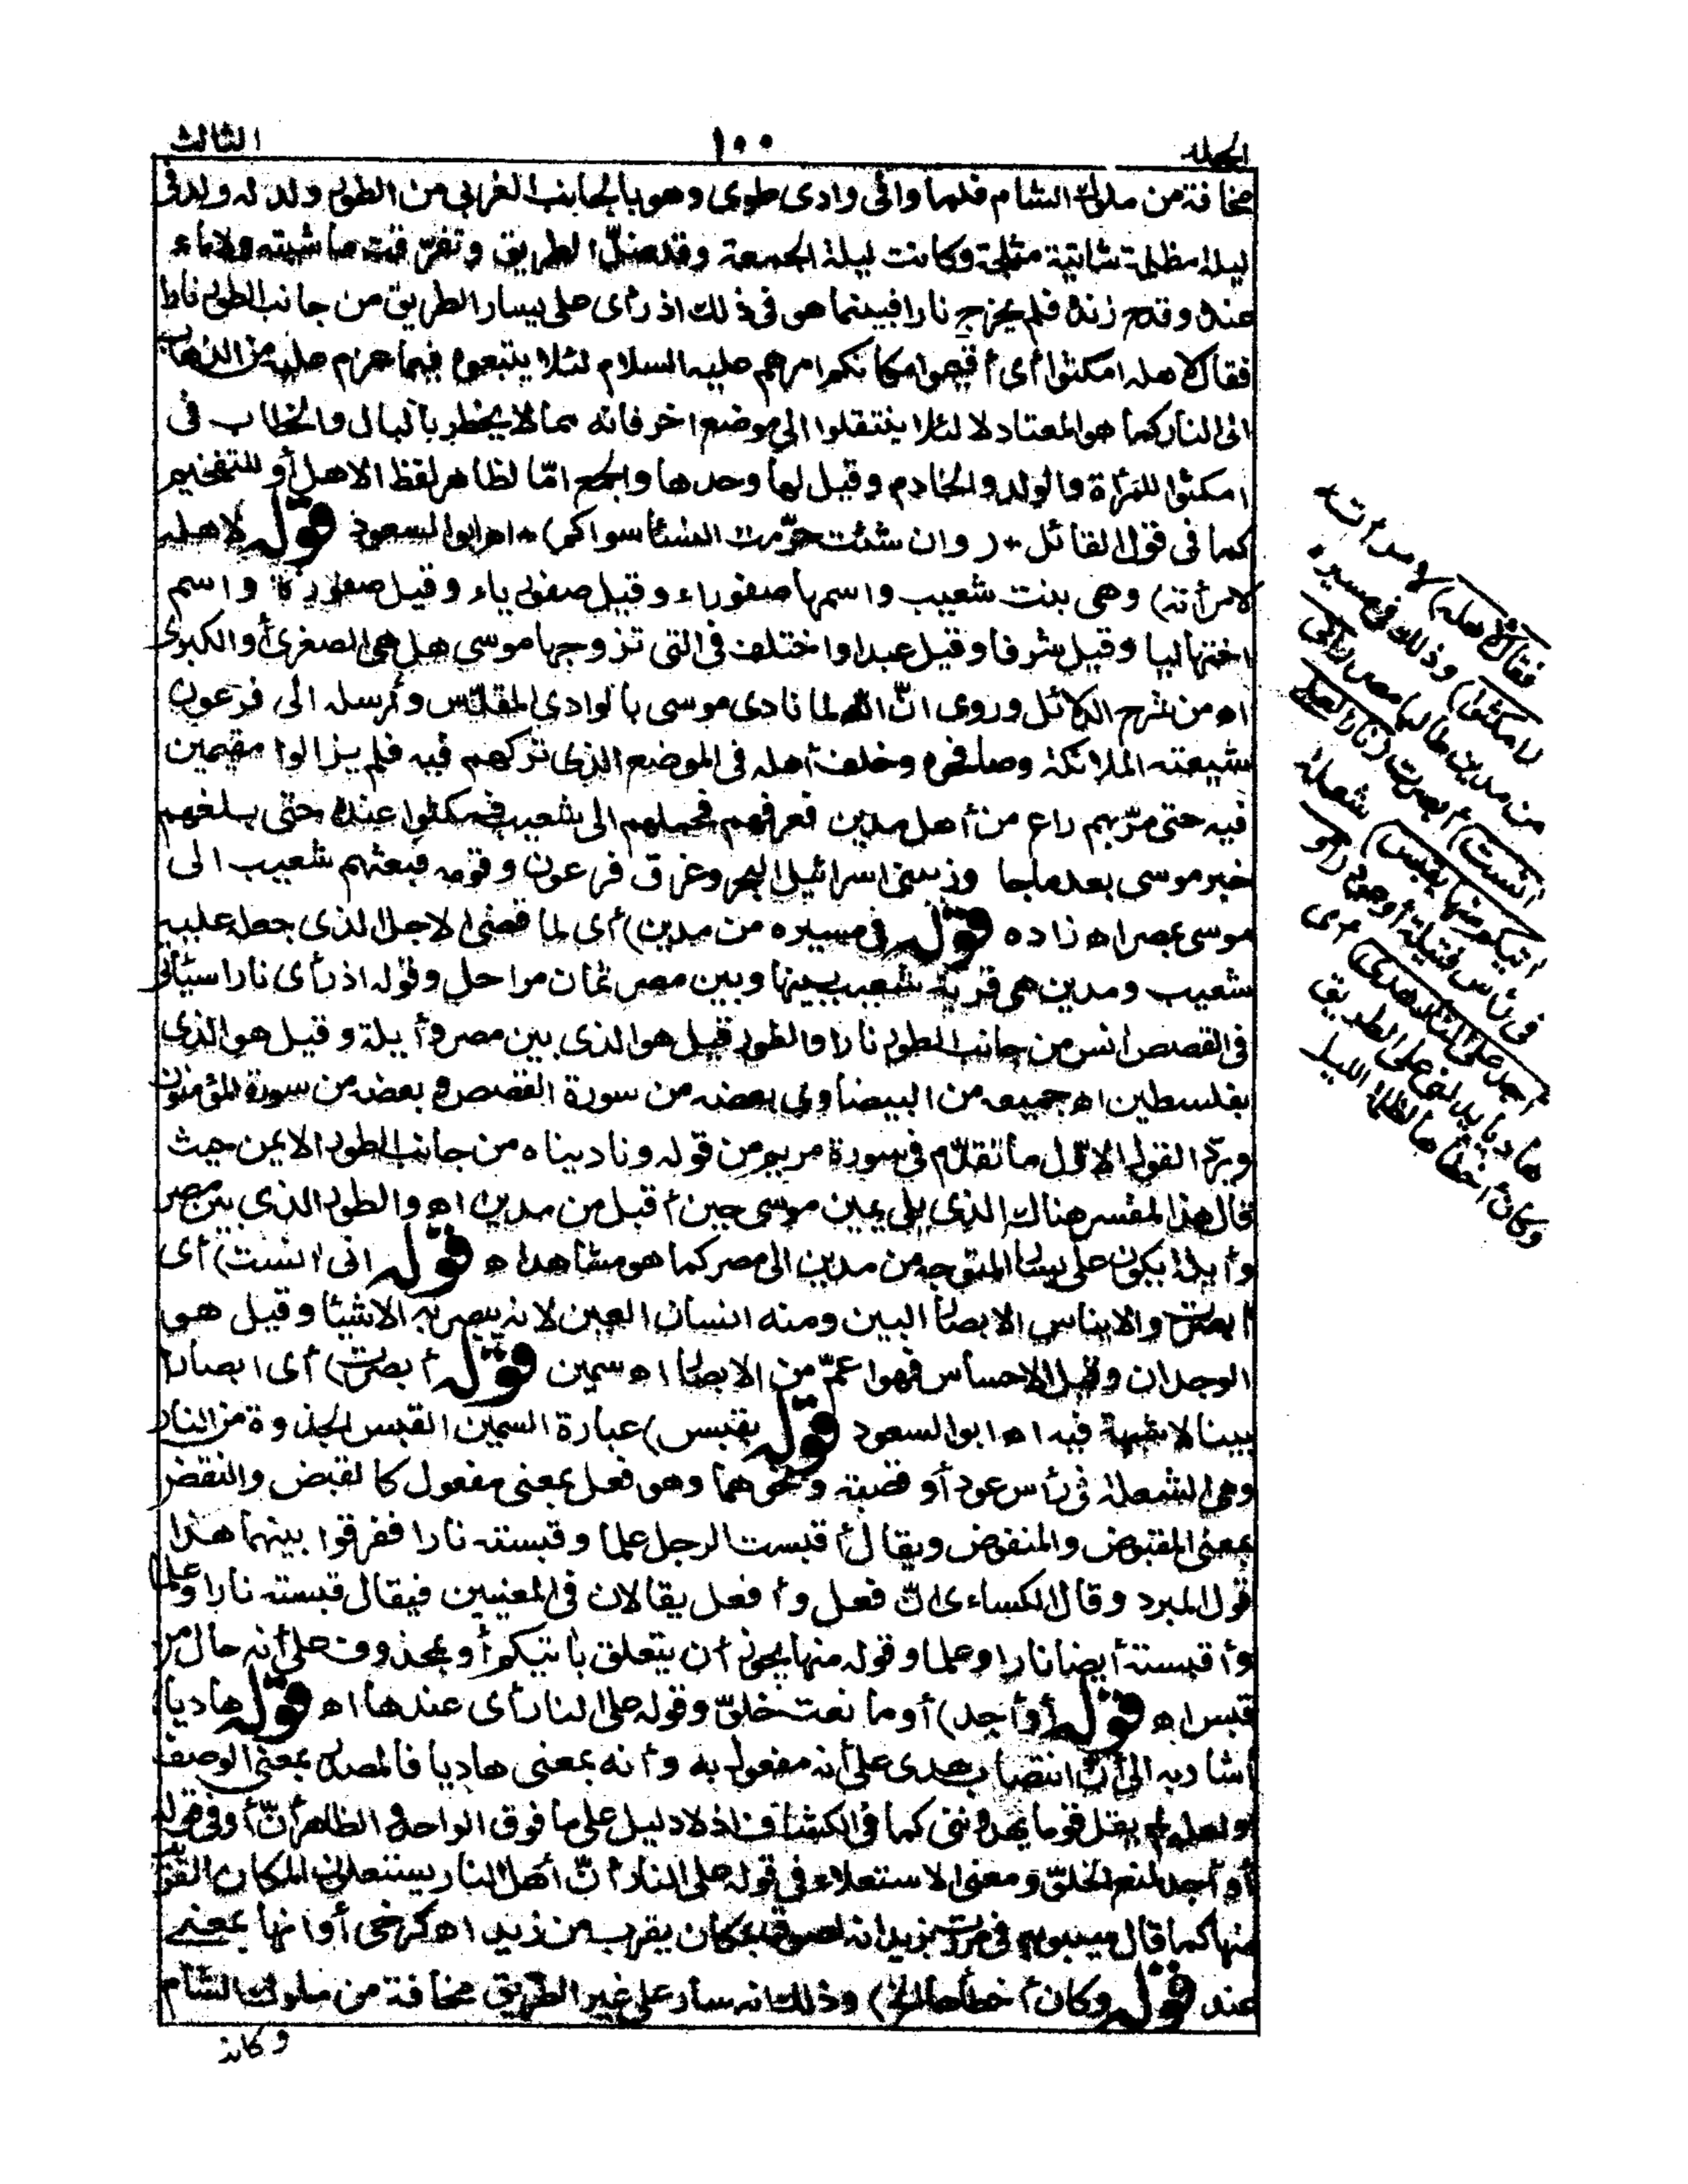 الجلد
١٠٠
الثالث
مخافة من ملوك الشام فلما وافى وادى طوى وهو بالجانب الغربى من الطور ولد له ولد فى
ليلة مظلمة شاتية مثلجة وكانت ليلة الجمعة وقد ضلّ الطريق وتفرّقت ماشيته ولا ماء
عنده وقدح زنده فلم يخرج نارا فبينما هو فى ذلك اذ رأى على يسار الطريق من جانب الطور نارا
فقال لاهله امكثوا أى أقيموا مكانكم امرهم عليه السلام لئلا يتبعوه فيما عزم عليه من الذهاب
الى النار كما هو المعتاد لا لئلا ينتقلوا الى موضع اخر فانه مما لا يخطر بالبال والخطاب فى
امكثوا للمرأة والولد والخادم وقيل لها وحدها والجمع امّا لظاهر لفظ الاهل أو للتفخيم
كما فى قول القائل * ر وان شئت حرّمت النسا سواكم) * اه ابو السعود قوله لاهله
لامرأته) وهى بنت شعيب واسمها صفوراء وقيل صفورياء وقيل صفورة واسم
اختها ليا وقيل شرفا وقيل عبدا واختلف فى التى تزوجها موسى هل هى الصغرى أو الكبرى
اه من شرح الدلائل وروى انّ الله لما نادى موسى بالوادى المقدّس وأرسله الى فرعون
شيعته الملائكة وصافحوه وخلف أهله فى الموضع الذى تركهم فيه فلم يزالوا مقيمين
فيه حتى مرّ بهم راع من أهل مدين فعرفهم فحملهم الى شعيب فمكثوا عنده حتى بلغهم
خبر موسى بعد ما جاوز ببنى اسرائيل البحر وغرق فرعون وقومه فبعثهم شعيب الى
موسى بمصر اه زاده قوله فى مسيره من مدين) أى لما قضى الاجل الذى جعله عليه
شعيب ومدين هى قرية شعيب بينها وبين مصر ثمان مراحل وقوله اذ رأى نارا سيأتى
فى القصص انس من جانب الطور نارا والطور قيل هو الذى بين مصر وأيلة وقيل هو الذى
بفلسطين اه جميعه من البيضاوى بعضه من سورة القصص وبعضه من سورة المؤمنون
ويردّ القول الاوّل ما تقدّم فى سورة مريم من قوله وناديناه من جانب الطور الايمن حيث
قال هذا المفسر هناك الذى يلى يمين موسى حين أقبل من مدين اه والطور الذى بين مصر
وأيلة يكون على يسار المتوجه من مدين الى مصر كما هو مشاهد اه قوله انى انست) أى
أبصرت والايناس الابصار البين ومنه انسان العين لانه يبصر به الاشيا وقيل هو
الوجدان وقيل الاحساس فهو اعمّ من الابصار اه سمين قوله أبصرت) أى ابصارا
بينا لا شبهة فيه اه ابو السعود قوله بقبس) عبارة السمين القبس الجذوة من النار
وهى الشعلة فى رأس عود أو قصبة ونحوهما وهو فعل بمعنى مفعول كالقبض والنقض
بمعنى المقبوض والمنقوض ويقال أقبست الرجل علما وقبسته نارا ففرقوا بينهما هذا
قول المبرد وقال الكساءى انّ فعل وأفعل يقالان فى المعنيين فيقال قبسته نارا وعلما
وأقبسته أيضا نارا وعلما وقوله منها يجوز أن يتعلق بآتيكم أو بمحذوف على أنه حال من
قبس اه قوله أو أجد) أو مانعة خلوّ وقوله على النار أى عندها اه قوله هاديا
أشار به الى أنّ انتصاب هدى على أنه مفعول به وأنه بمعنى هاديا فالمصدر بمعنى الوصف
ولعله لم يقل قوما يهدوننى كما فى الكشاف اذ لا دليل على ما فوق الواحد والظاهر أنّ أو فى قوله
أو أجد لمنع الخلوّ ومعنى الاستعلاء فى قوله على النار أنّ أهل النار يستعلون المكان القريب
منها كما قال سيبويه فى مررت بزيد انه لصوق بمكان يقرب من زيد اه كرخى أو انها بمعنى
عند قوله وكان أخطأها الخ) وذلك انه سار على غير الطريق مخافة من ملوك الشام
وكانت
فقال لاهله) لامرأته
(امكثوا) وذلك فى مسيره
من مدين طالبا مصر (انى
انست) أبصرت (نارا لعلى
اتيكم منها بقبس) شعلة
فى رأس فتيلة أو عود (أو
اجد على النار هدى) أى
هاديا يدلنى على الطريق
وكان أخطأها لظلمة الليل